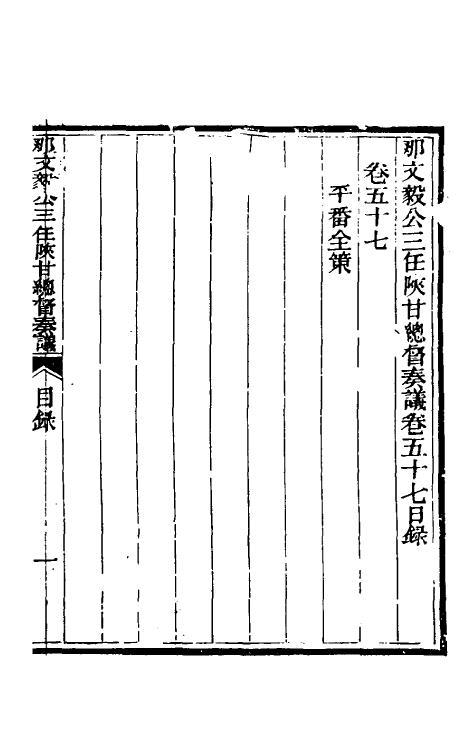 那文毅公三任陝甘總督奏議卷五十七目錄
卷五十七
平番全策
那文毅公三任陝甘總督奏議
目錄
一